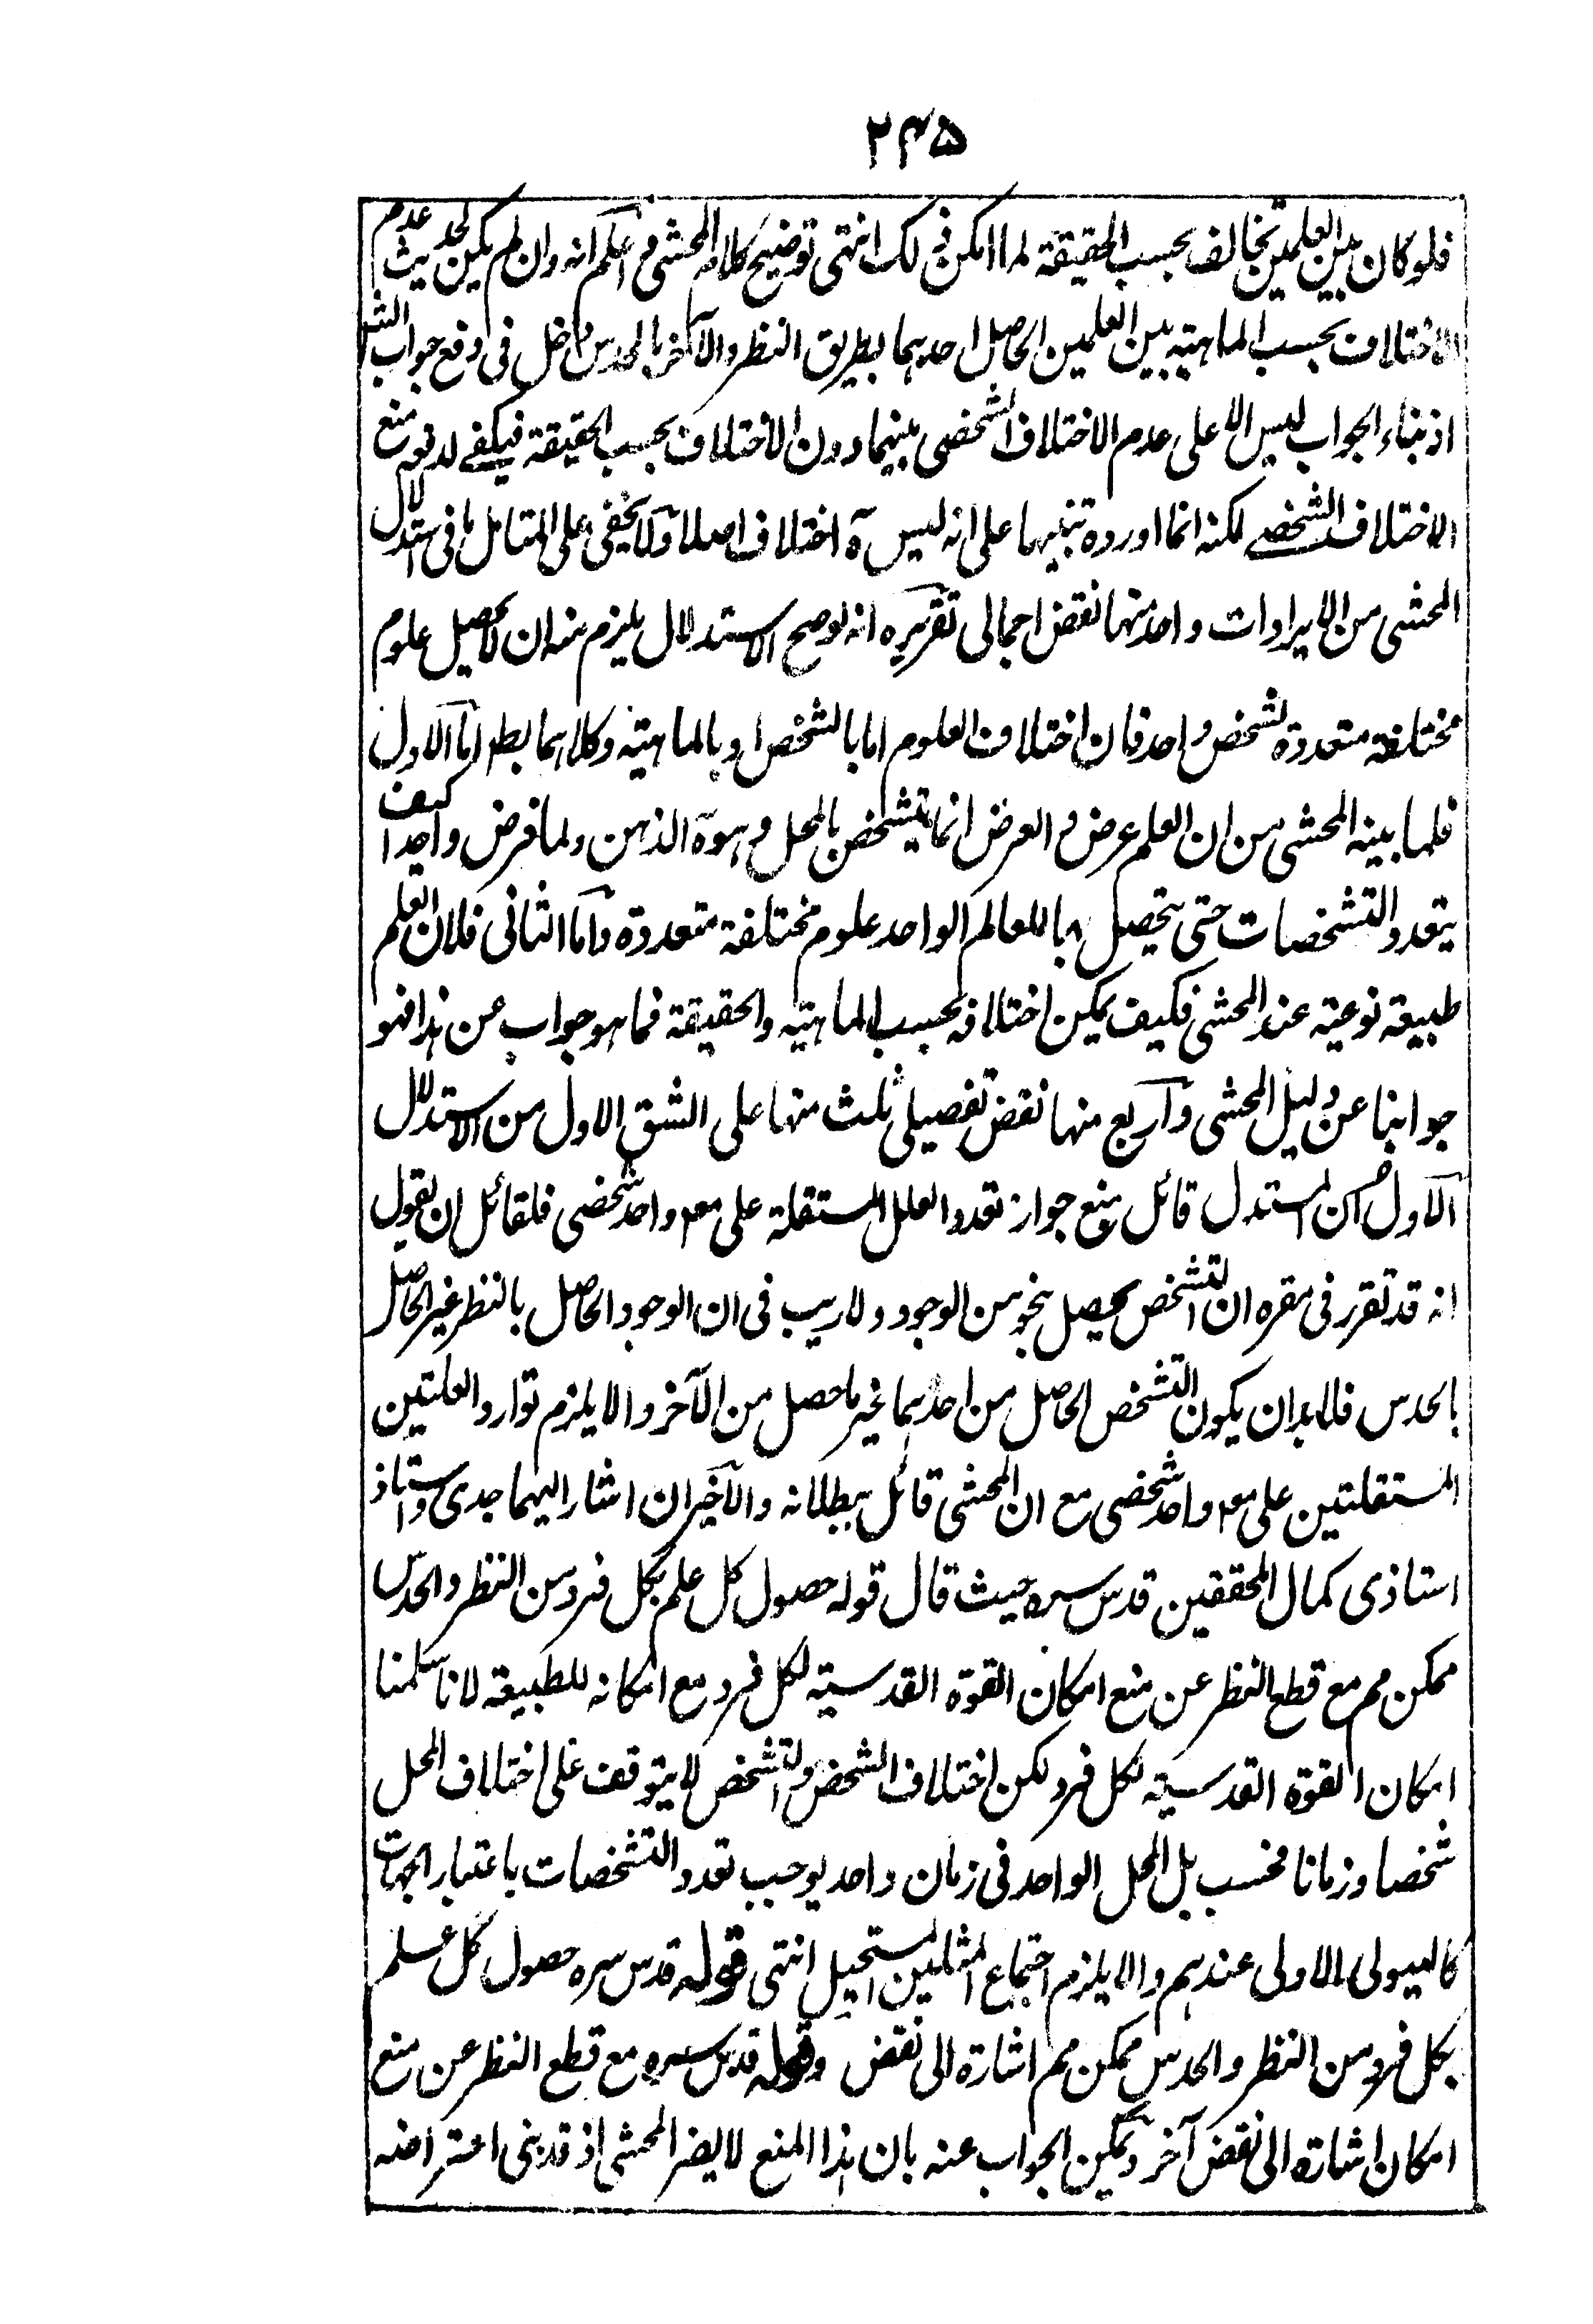 ۲۴۵
فلو كان بين العلمين تخالف بحسب الحقيقة لما امكن ذلك انتهى توضيح كلام المحشى ثم اعلم انه وان لم يكن لحديث عدم
الاختلاف بحسب الماهية بين العلمين الحاصل احدهما بطريق النظر والآخر بالحدس دخل فى دفع جواب الش
اذ بناء الجواب ليس الا على عدم الاختلاف الشخصى بينهما دون الاختلاف بحسب الحقيقة فيكفى لدفعه منع
الاختلاف الشخصى لكنه انما اورده تنبيها على انه ليس ة اختلاف اصلا ولا يخفى على المتامل ما فى استدلال
المحشى من الايرادات واحد منها نقض اجمالى تقريره انه لو صح الاستدلال يلزم منه ان لا يحصل علوم
مختلفة متعددة لشخص واحد فان اختلاف العلوم اما بالشخص او بالماهية وكلاهما بط اما الاول
فلما بينه المحشى من ان العلم عرض والعرض انما يتشخص بالمحل وهو ة الذهن ولما فرض واحدا كيف
يتعدد التشخصات حتى يحصل بالعالم الواحد علوم مختلفة متعددة واما الثانى فلان العلم
طبيعة نوعية عند المحشى فكيف يمكن اختلافه بحسب الماهية والحقيقة فما هو جواب عن هذا فهو
جوابنا عن دليل المحشى وآربع منها نقض تفصيلى ثلث منها على الشق الاول من الاستدلال
الاول ان المستدل قائل بمنع جواز تعدد العلل المستقلة على مع واحد شخصى فلقائل ان يقول
انه قد تقرر فى مقره ان التشخص يحصل بنحو من الوجود ولا ريب فى ان الوجود الحاصل بالنظر غير الحاصل
بالحدس فلا بد ان يكون التشخص الحاصل من احدهما غير ما حصل من الآخر والا يلزم توارد العلتين
المستقلتين على مع واحد شخصى مع ان المحشى قائل ببطلانه والآخيران اشار اليهما جدى واستاذ
استاذى كمال المحققين قدس سره حيث قال قوله حصول كل علم بكل فرد من النظر والحدس
ممكن مم مع قطع النظر عن منع امكان القوة القدسية لكل فرد مع امكانه للطبيعة لانا سلمنا
امكان القوة القدسية لكل فرد لكن اختلاف الشخص والتشخص لا يتوقف على اختلاف المحل
شخصا وزمانا فحسب بل المحل الواحد فى زمان واحد يوجب تعدد التشخصات باعتبار الجهات
كالهيولى الاولى عندهم والا يلزم اجتماع المثلين المستحيل انتهى قوله قدس سره حصول كل علم
بكل فرد من النظر والحدس ممكن مم اشارة الى نقض وقوله قدس سره مع قطع النظر عن منع
امكان اشارة الى نقض آخر ويمكن الجواب عنه بان هذا المنع لا يضر المحشى اذ قد بنى اعتراضه